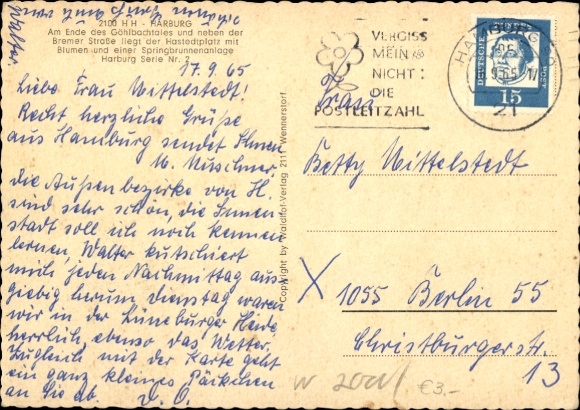 2100 HH - HARBURG
Am Ende des Göhlbachtales und neben der
Bremer Straße liegt der Hastedtplatz mit
Blumen und einer Springbrunnenanlage
Harburg Serie Nr. 2
17.9.65
Liebe Frau Wittelstedt!
Recht herzliche Grüße
aus Hamburg sendet Ihnen
Die Außenbezirke von H.
sind sehr schön, die Innen-
stadt soll ich noch kennen
lernen, Walter kutschiert
mich jeden Nachmittag aus-
giebig herum, Dienstag waren
wir in der Lüneburger Heide
herrlich, ebenso das Wetter.
Zugleich mit der Karte geht
ein ganz kleines Päckchen
an Sie ab. D. O.
Walter
Copyright by Waldhof-Verlag 2111 Wennerstorf
VERGISS
MEIN
NICHT:
DIE
POSTLEITZAHL
HAMBURG
21
DEUTSCHE BUNDESPOST
15
Frau
Betty Wittelstedt
X 1055 Berlin 55
Christburgerstr.
13
€3,-